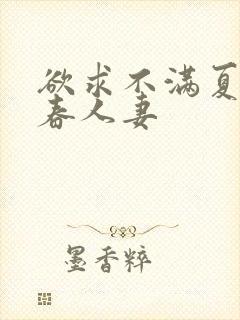 欲求不满夏
春人妻
墨香粹